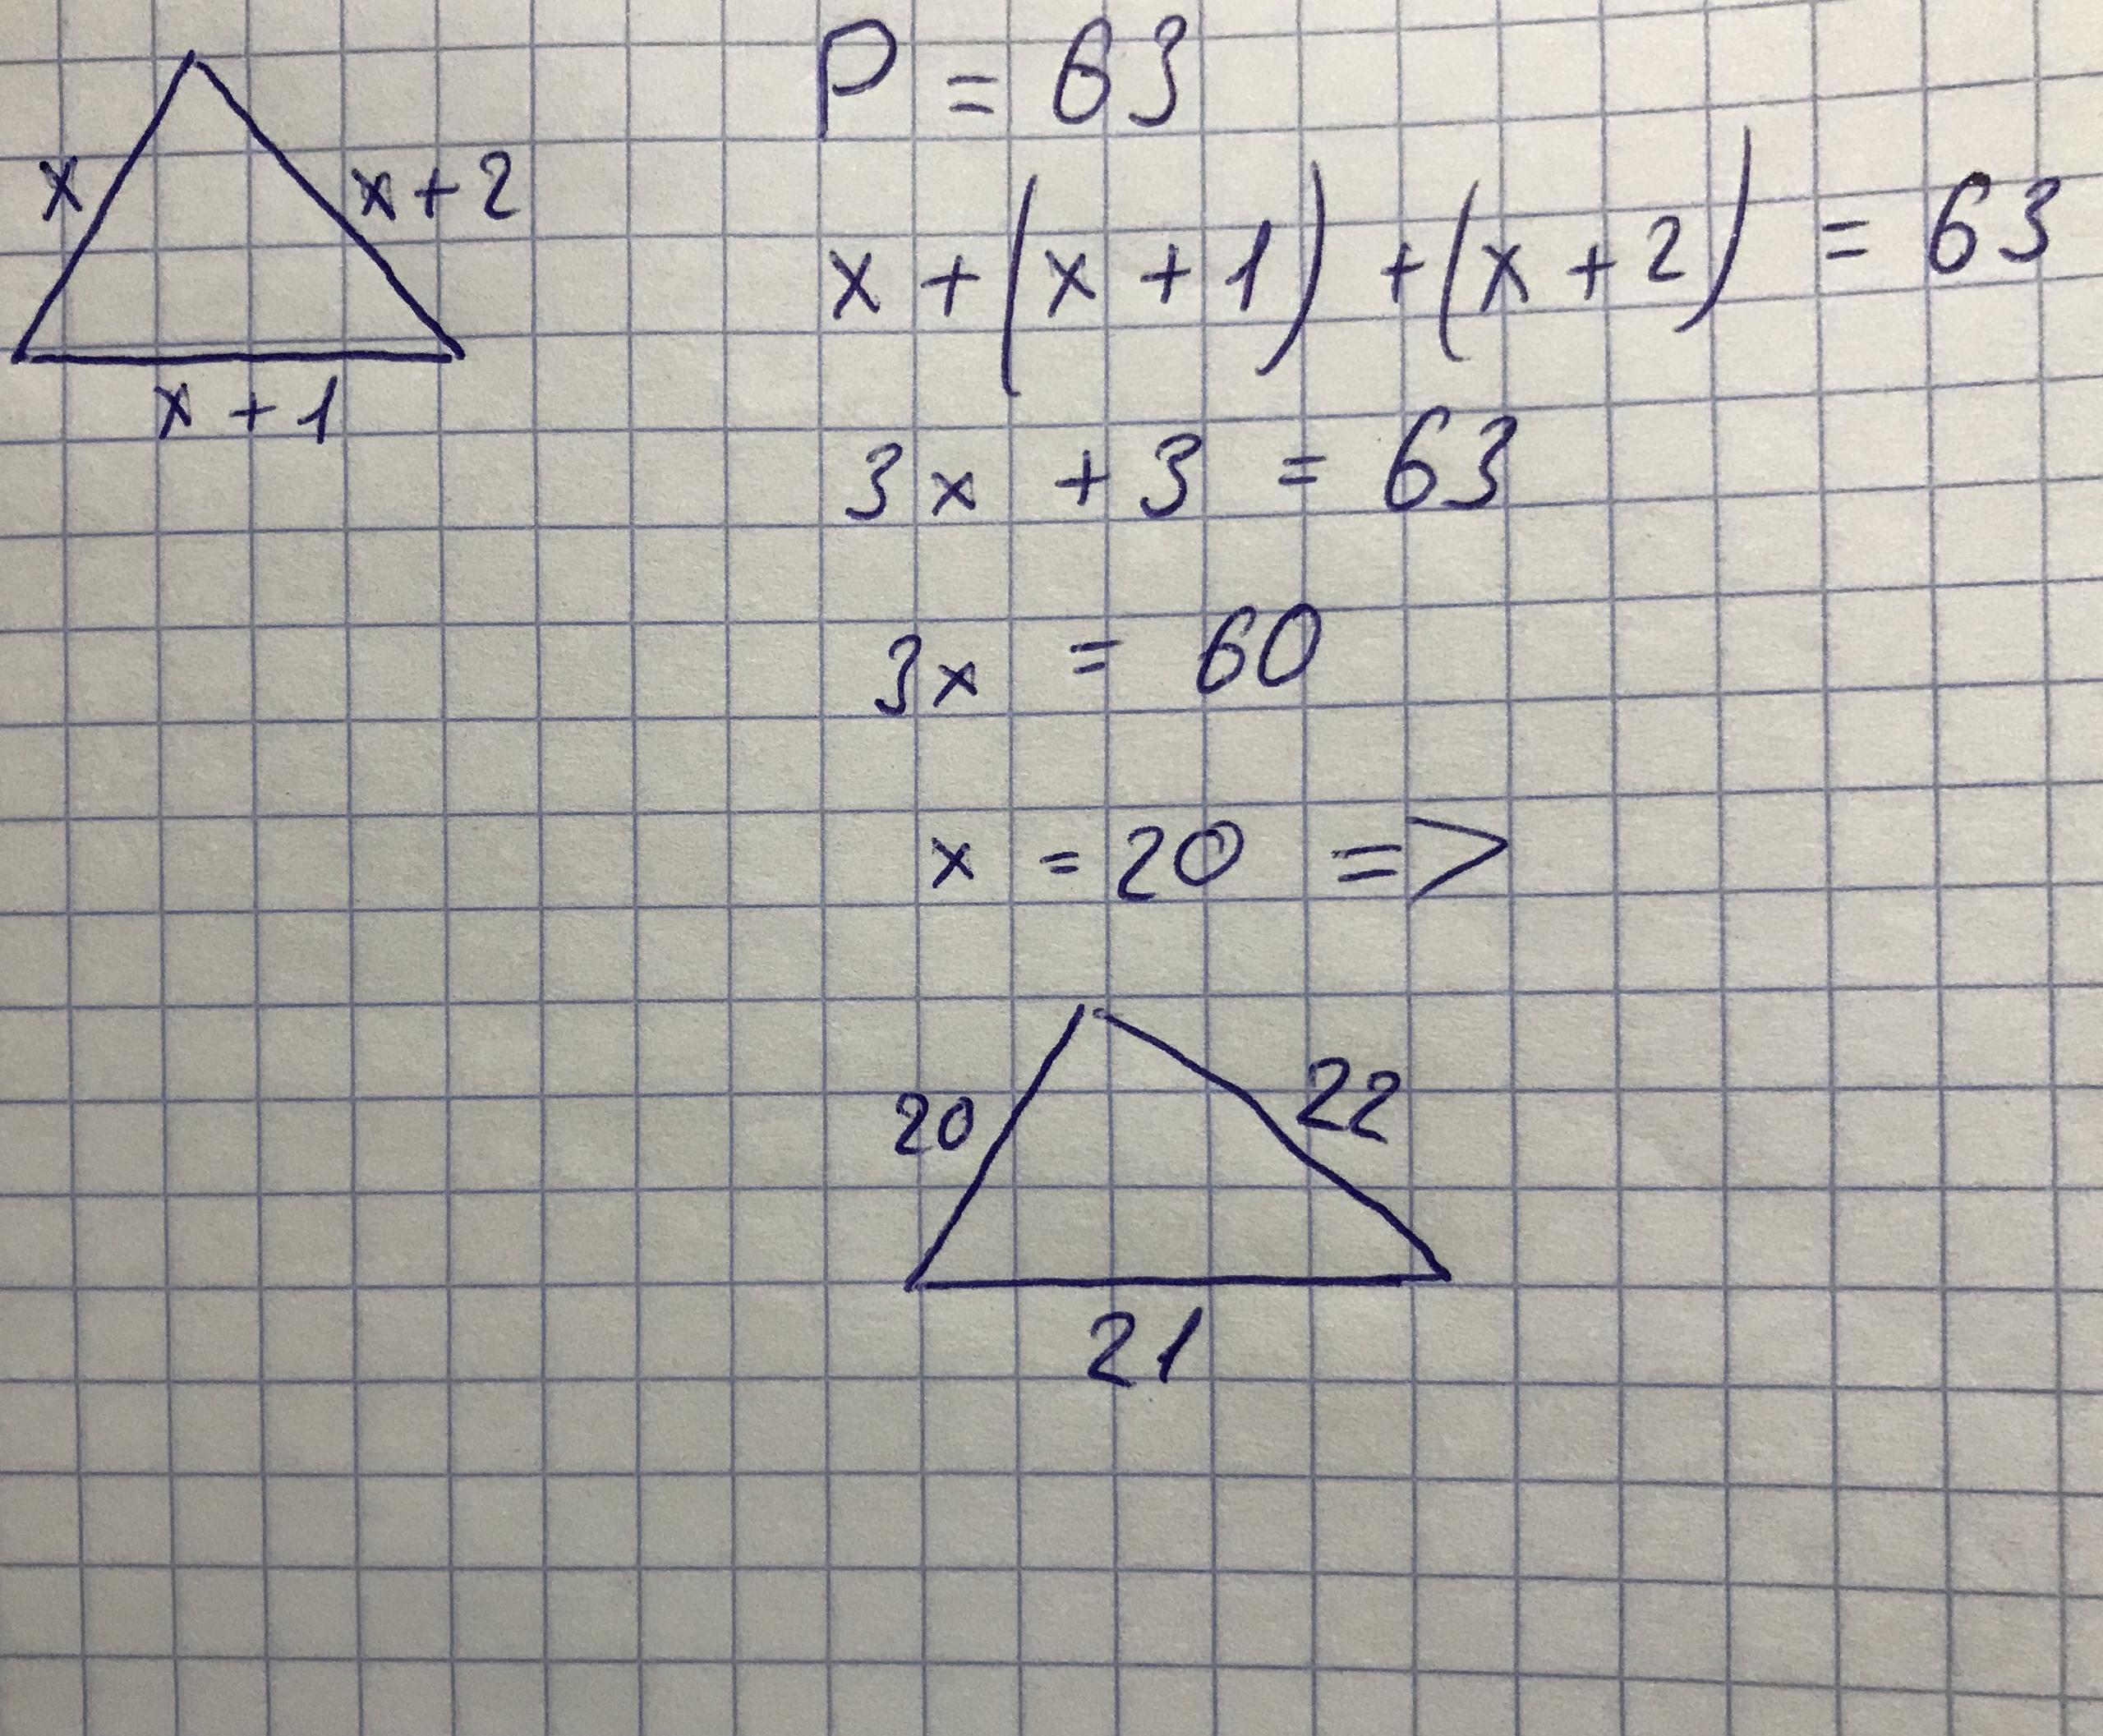 x
x+2
x+1
P = 63
x + (x + 1) + (x + 2) = 63
3x + 3 = 63
3x = 60
x = 20 =>
20
22
21